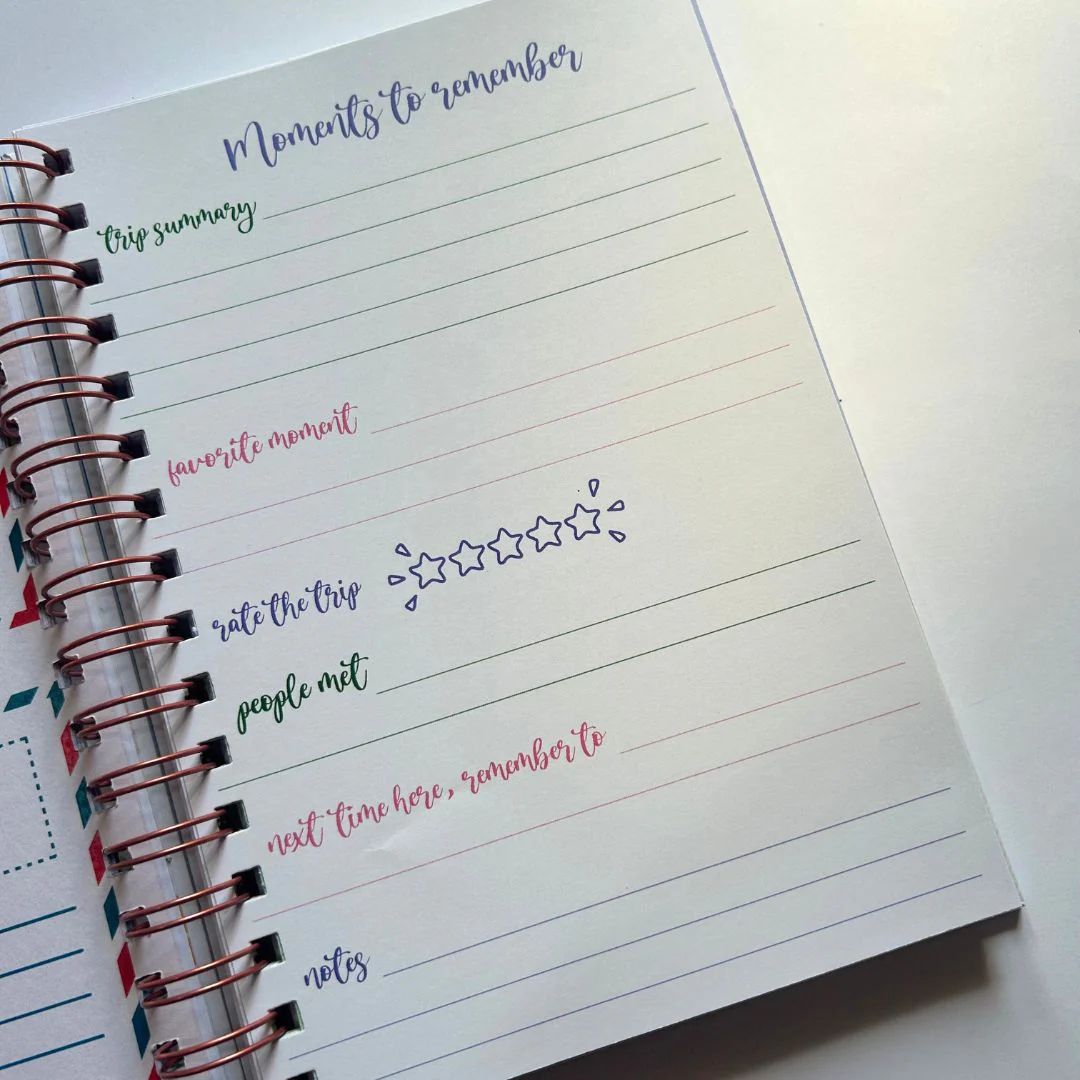 Moments to remember
trip summary
favorite moment
rate the trip
people met
next time here, remember to
notes